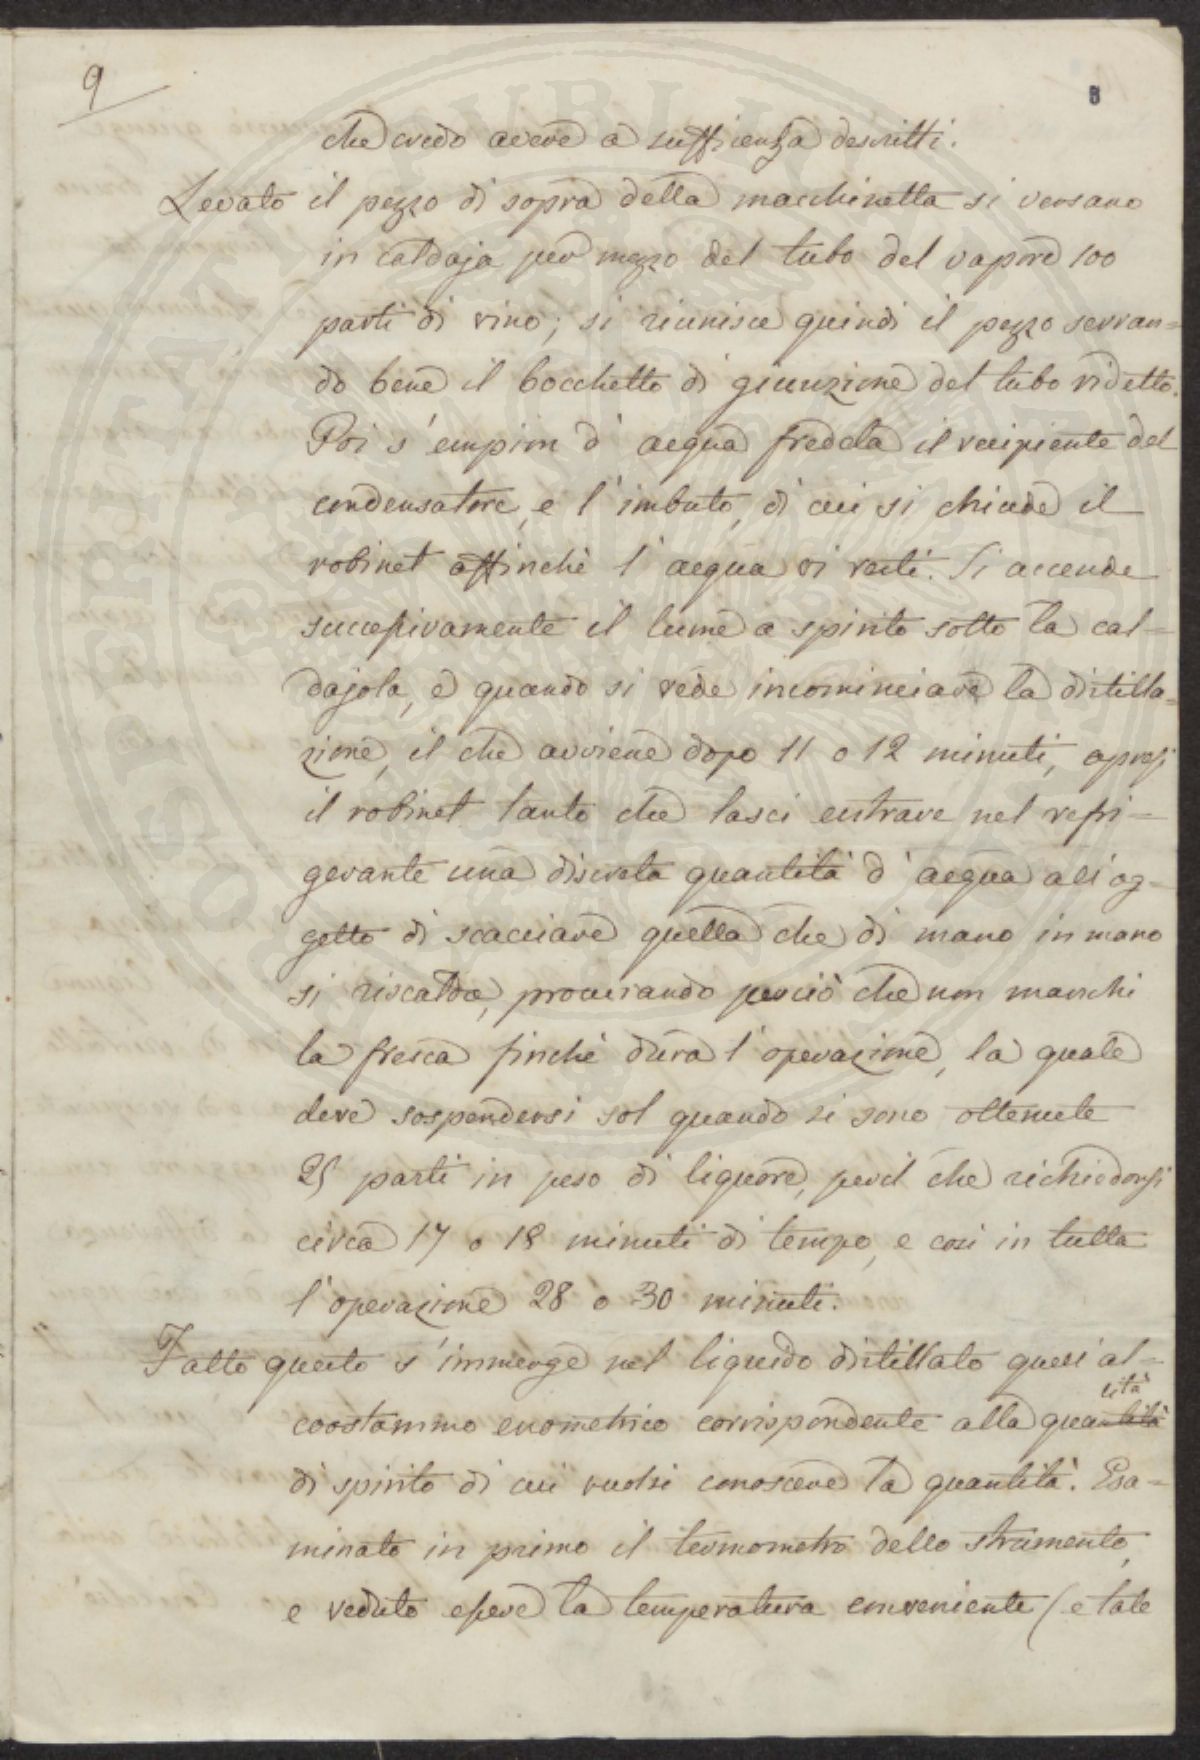 9
8
che credo avere a sufficienza descritti.
Levato il pezzo di sopra della macchinetta si versano
in caldaja per mezzo del tubo del vapore 100
parti di vino; si riunisce quindi il pezzo serran=
do bene il bocchetto di giunzione del tubo ridetto.
Poi s'empion d'acqua fredda il recipiente del
condensatore, e l'imbuto, di cui si chiude il
robinet affinchè l'acqua vi resti. Si accende
successivamente il lume a spirito sotto la cal=
dajola, e quando si vede incominciare la distilla=
zione, il che avviene dopo 11 o 12 minuti, apresi
il robinet tanto che lasci entrare nel refri=
gerante una discreta quantità d'acqua all'og=
getto di scacciare quella che di mano in mano
si riscalda, procurando perciò che non manchi
la fresca finchè dura l'operazione, la quale
deve sospendersi sol quando si sono ottenute
25 parti in peso di liquore, per il che richiedonsi
circa 17 o 18 minuti di tempo, e così in tutta
l'operazione 28 o 30 minuti.
Fatto questo s'immerge nel liquido distillato quell'al=
coostammo enometrico corrispondente alla quantità lità
di spirito di cui vuolsi conoscere la quantità. Esa=
minato in primo il termometro dello strumento,
e veduto essere la temperatura conveniente (e tale